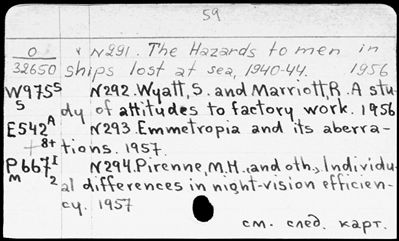 59
O × N291. The Hazards to men in
32650 ships lost at sea, 1940-44. 1956
W975S N292. Wyatt, S. and Marriott, R. A stu-
S dy of attitudes to factory work. 1956
E542A N293. Emmetropia and its aberra-
+ 8+ tions. 1957.
P667I N294. Pirenne, M.H., and oth., Individu-
M 2 al differences in night-vision efficien-
cy. 1957
см. след. карт.